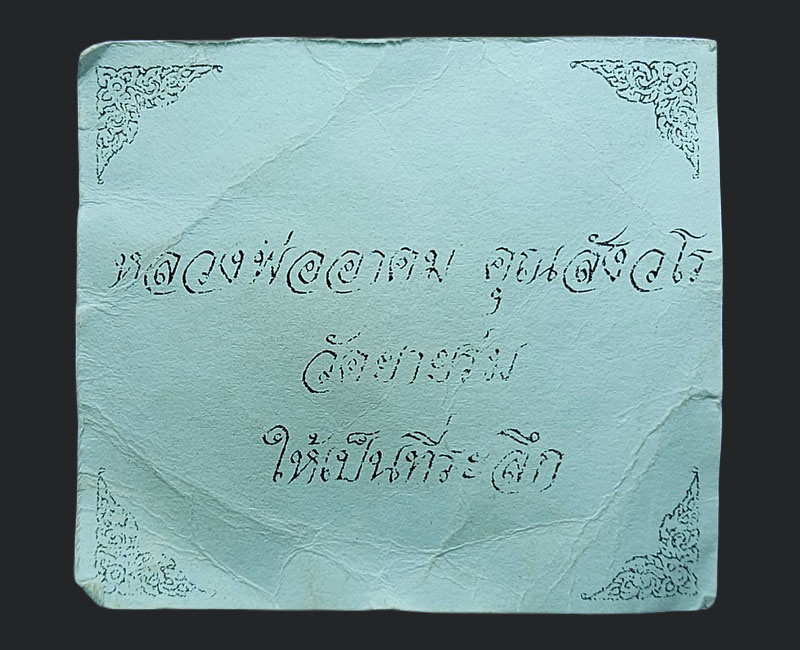 หลวงพ่ออาคม คุณสังวโร
วัดยายร่ม
ให้เป็นที่ระลึก